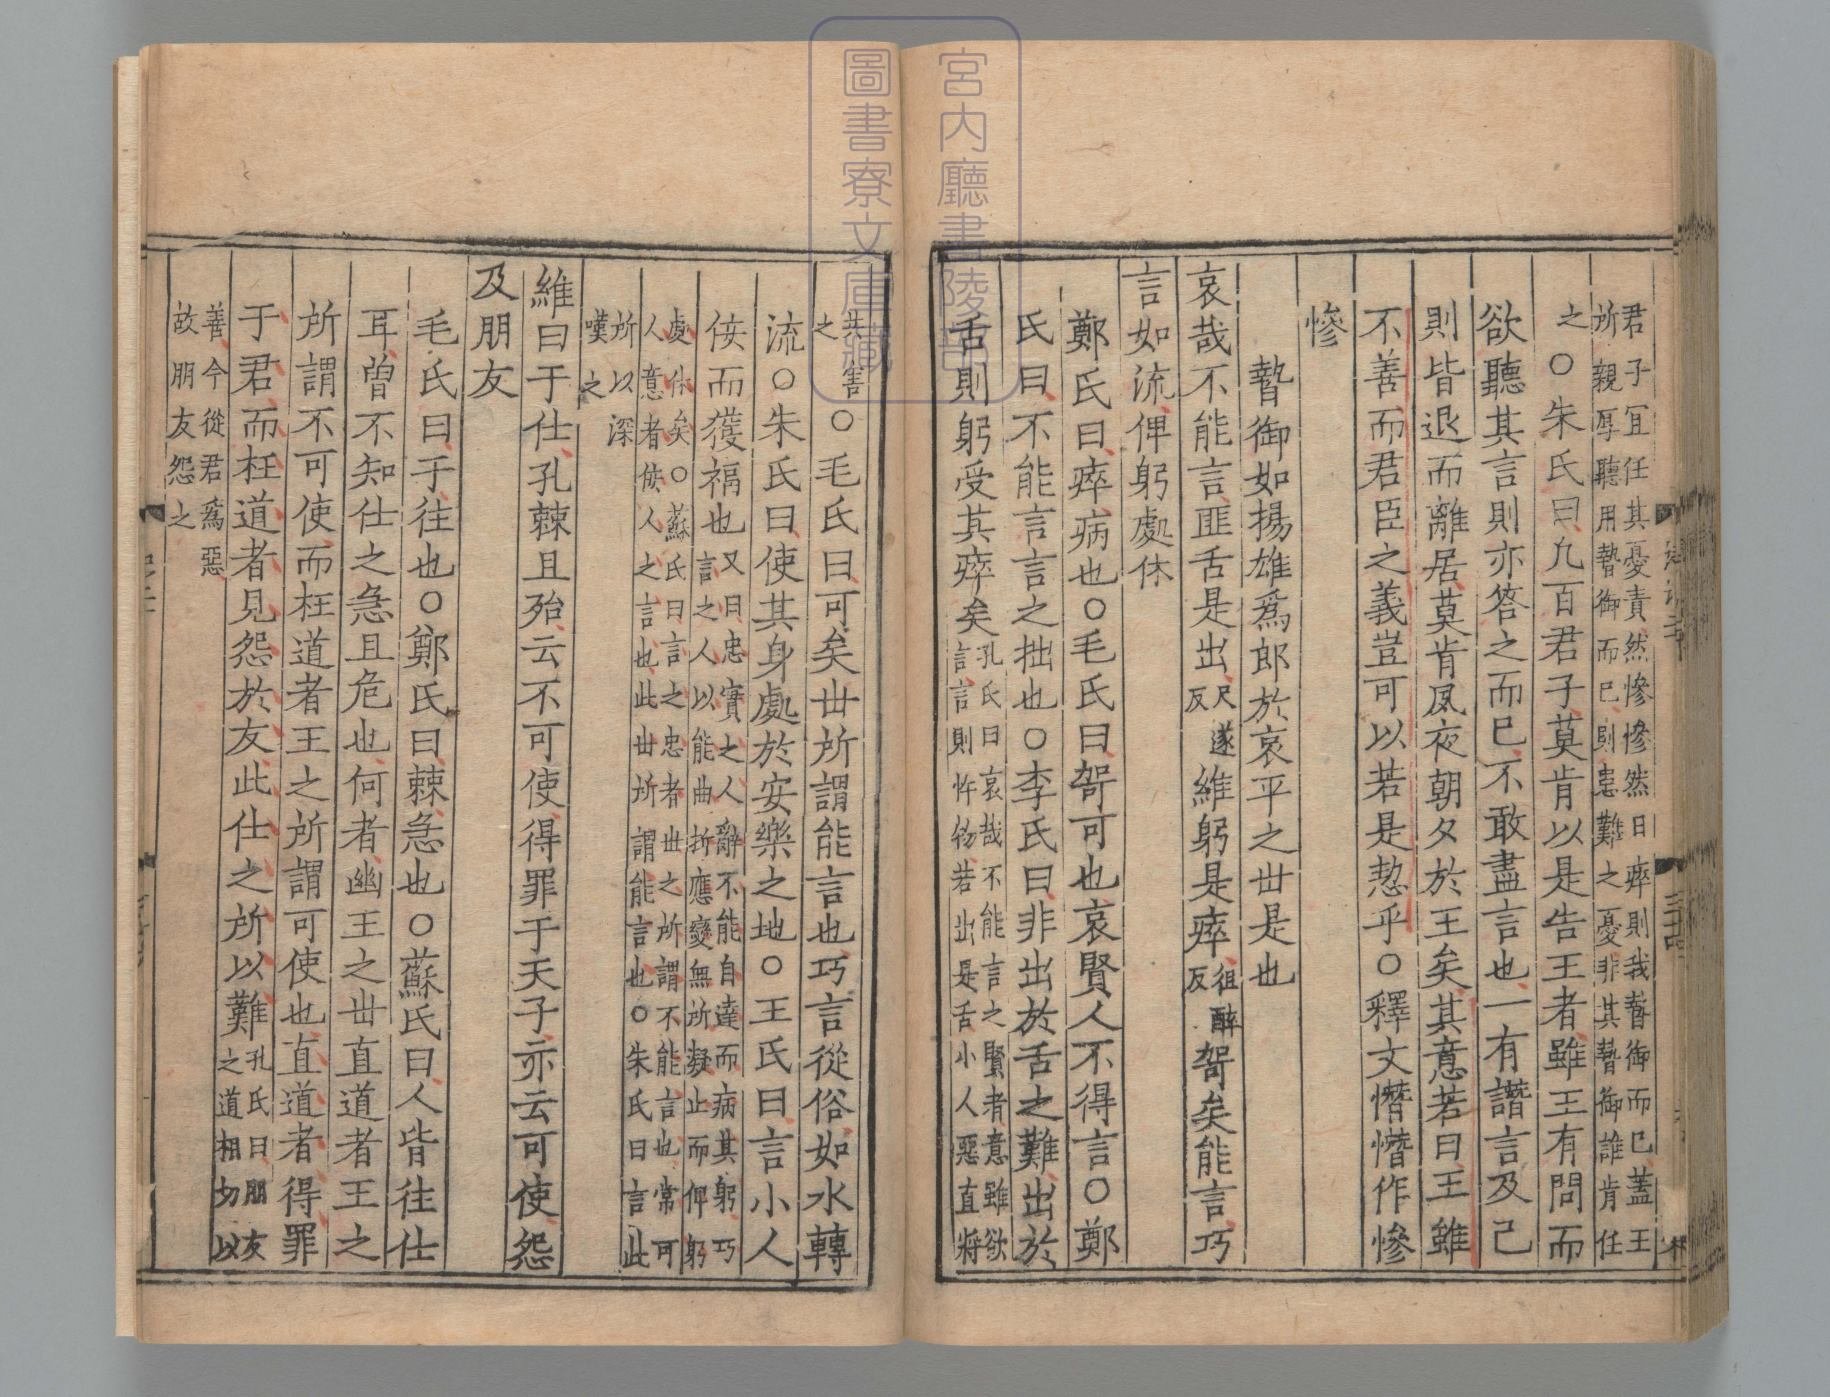 君子冝任其憂責然慘慘然日瘁則我暬御而已蓋王
所親厚聽用暬御而已則患難之憂非其暬御誰肯任
之○朱氏曰凢百君子莫肯以是告王者雖王有問而
欲聽其言則亦答之而已不敢盡言也一有譖言及己
則皆退而離居莫肯夙夜朝夕於王矣其意若曰王雖
不善而君臣之義豈可以若是恝乎○釋文憯憯作慘
慘
暬御如揚雄爲郎於哀平之丗是也
哀哉不能言匪舌是出尺遂反維躬是瘁徂醉反哿矣能言巧
言如流俾躬處休
鄭氏曰瘁病也○毛氏曰哿可也哀賢人不得言○鄭
氏曰不能言言之拙也○李氏曰非出於舌之難出於
舌則躬受其瘁矣孔氏曰哀哉不能言之賢者意雖欲
言言則忤物若出是舌小人惡直將
共害之○毛氏曰可矣丗所謂能言也巧言從俗如水轉
流○朱氏曰使其身處於安樂之地○王氏曰言小人
佞而獲福也又曰忠實之人辭不能自達而病其躬巧
言之人以能曲折應變無所凝止而俾躬
處休矣○蘇氏曰言之忠者丗之所謂不能言也常可
人意者佞人之言也此丗所謂能言也○朱氏曰言此
所以深
嘆之
維曰于仕孔棘且殆云不可使得罪于天子亦云可使怨
及朋友
毛氏曰于往也○鄭氏曰棘急也○蘇氏曰人皆往仕
耳曽不知仕之急且危也何者幽王之丗直道者王之
所謂不可使而枉道者王之所謂可使也直道者得罪
于君而枉道者見怨於友此仕之所以難孔氏曰朋友
之道相切以
善今從君爲惡
故朋友怨之
宮內廳書陵部
圖書寮文庫藏